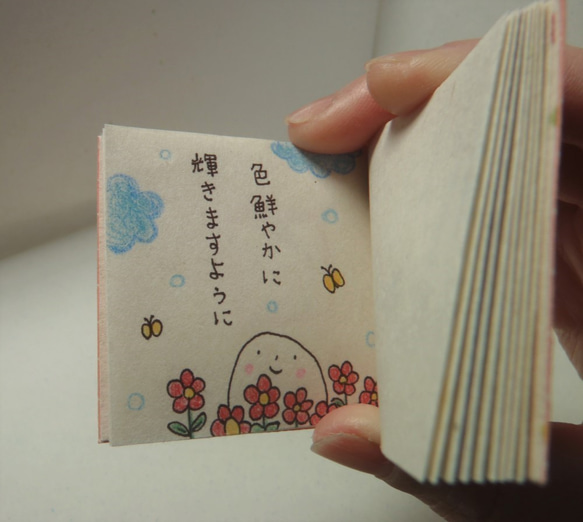 色鮮やかに
輝きますように